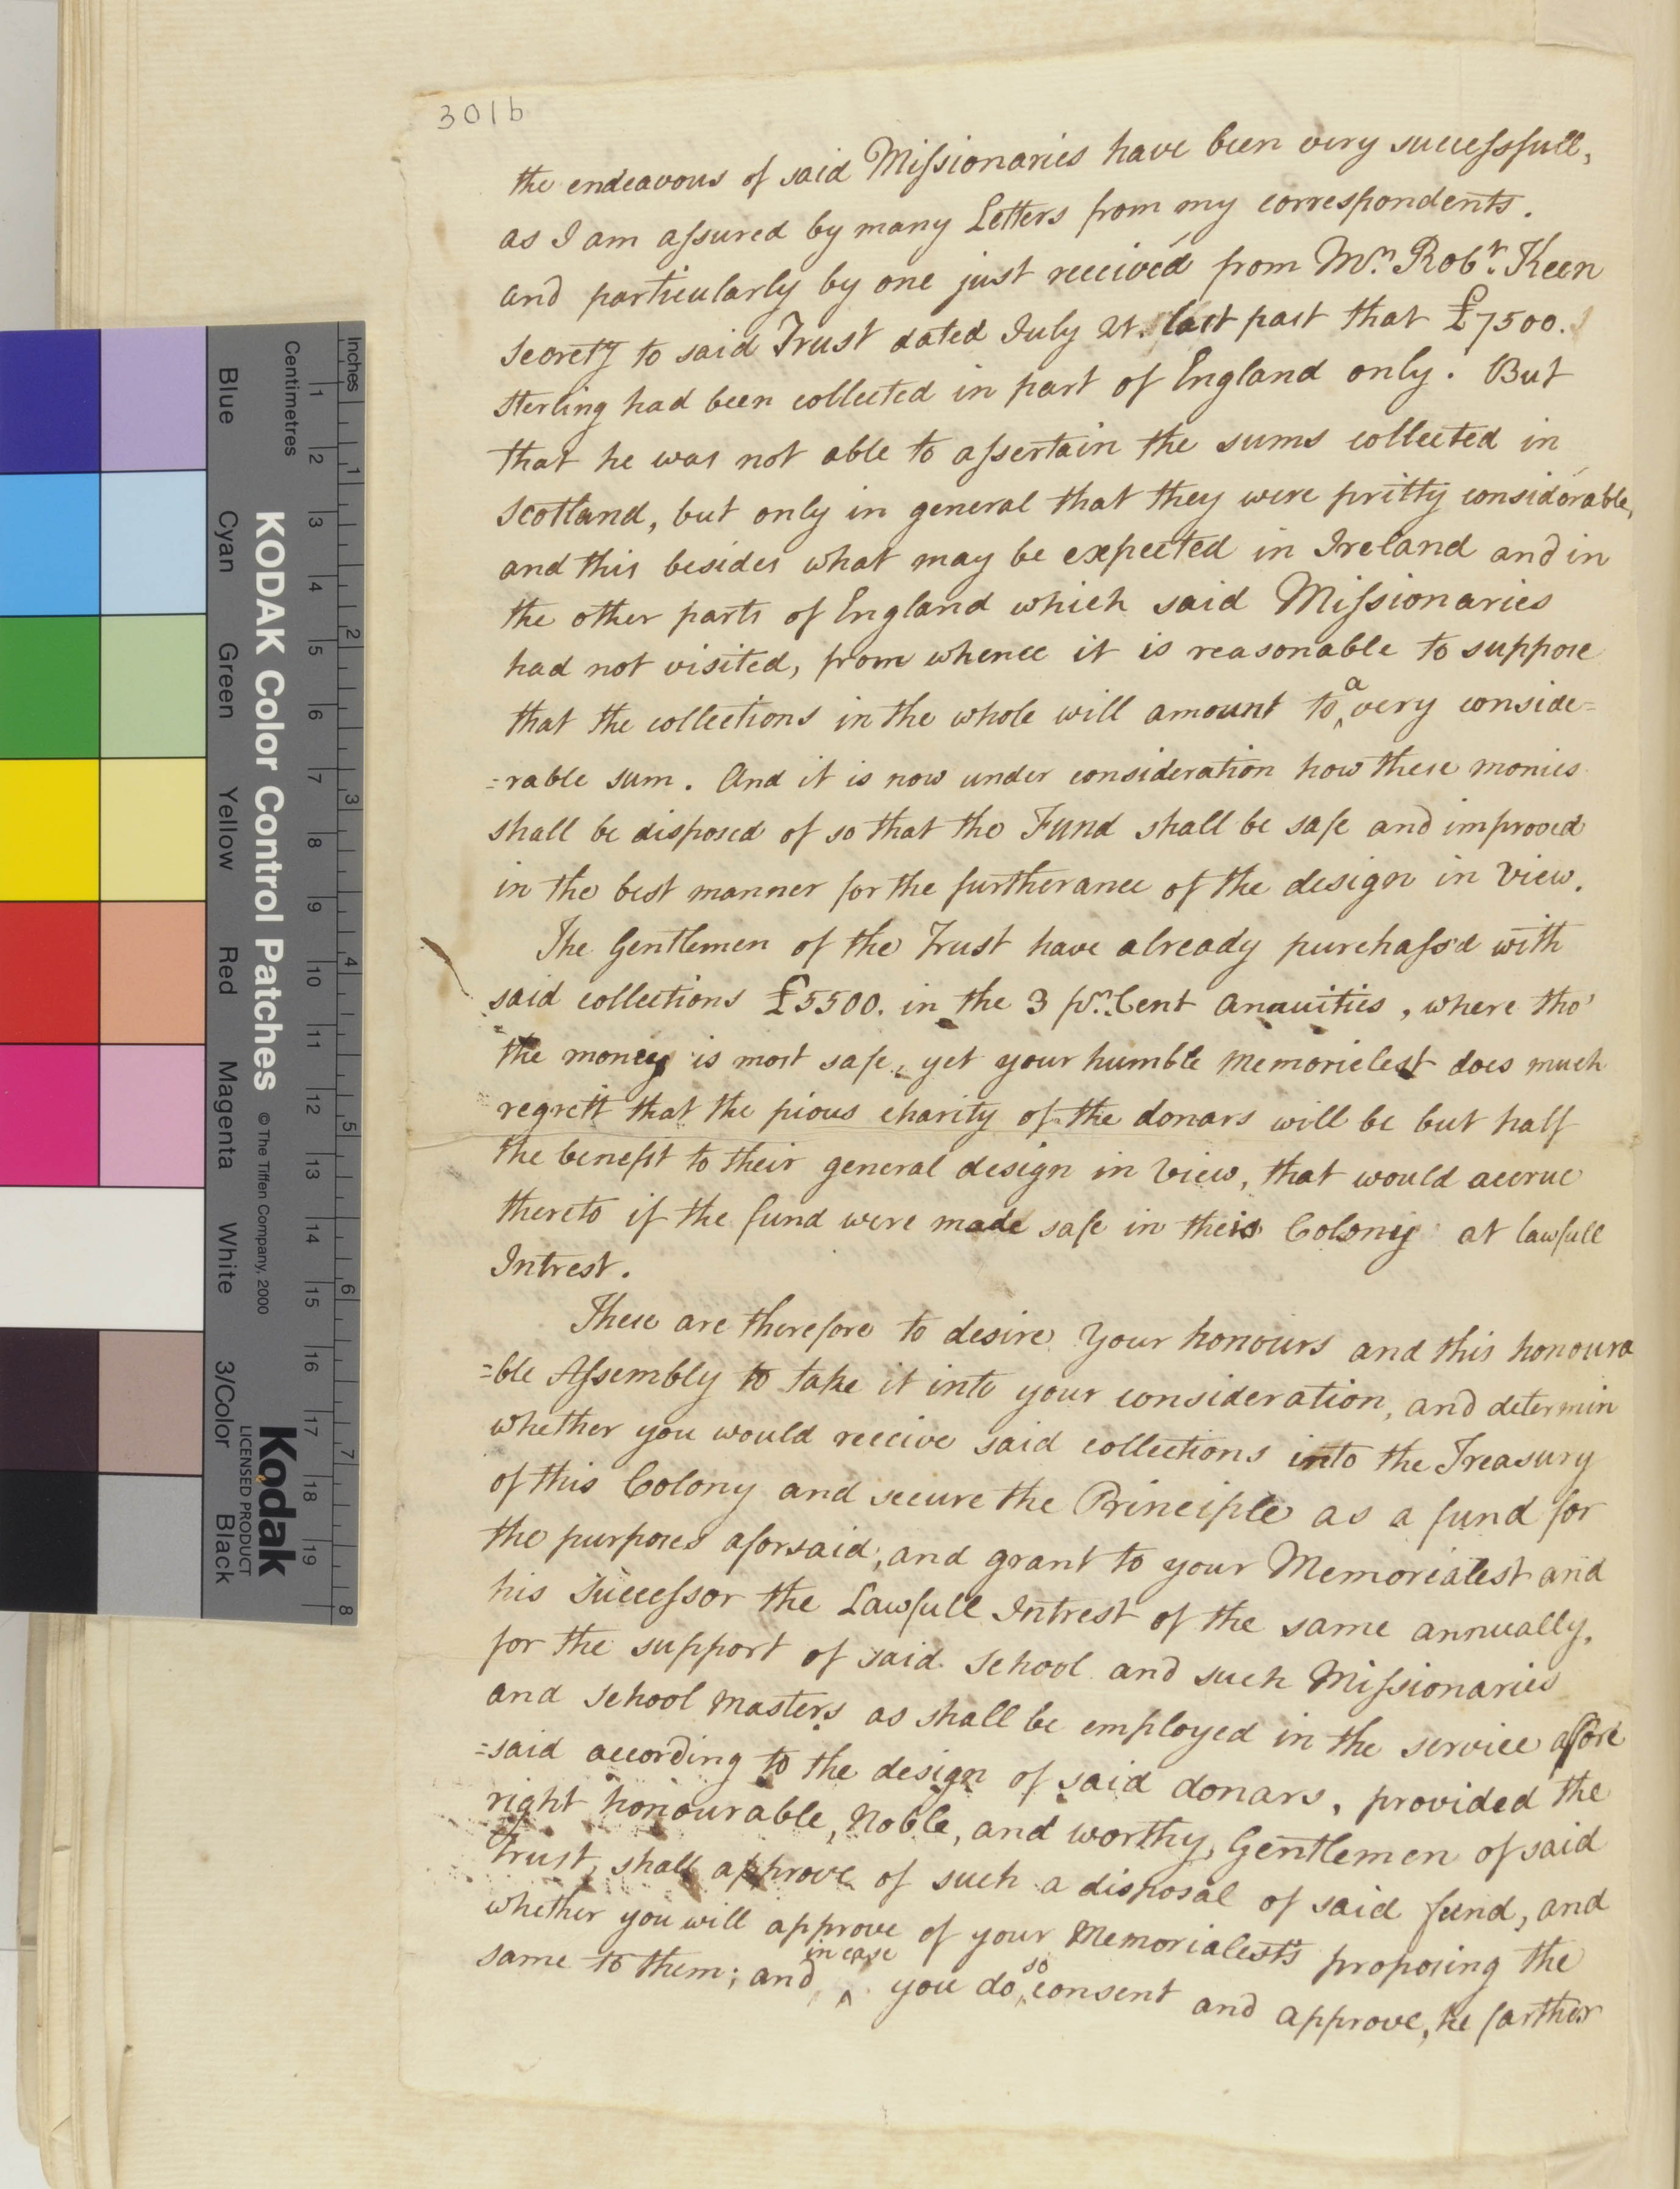 301b
the endeavous of said Miſsionaries have been very succeſsfull,
as I am aſsured by many Letters from my correspondents.
and particularly by one just received from Mr. Robt. Keen
Secrety to said Trust dated July 21. last past that £7500.
sterling had been collected in part of England only. But
that he was not able to aſsertain the sums collected in
Scotland, but only in general that they were pritty considerable,
and this besides what may be expected in Ireland and in
the other parts of England which said Miſsionaries
had not visited, from whence it is reasonable to suppose
that the collections in the whole will amount to a very conside=
=rable sum. And it is now under consideration how these monies
shall be disposed of so that the Fund shall be safe and improved
in the best manner for the furtherance of the design in View.
The Gentlemen of the Trust have already purchaſs'd with
said collections £5500. in the 3 pr. Cent Anauities, where tho'
the money is most safe, yet your humble Memorielest does much
regrett that the pious charity of the donars will be but half
the benefit to their general design in View, that would accrue
thereto if the fund were made safe in theis Colony at lawfull
Intrest.
These are therefore to desire Your honours and this honoura
=ble Aſsembly to take it into your consideration, and determin
whether you would receive said collections into the Treasury
of this Colony and secure the Principle as a fund for
the purposes aforsaid, and grant to your Memorialest and
his Succeſsor the Lawfull Intrest of the same annually,
for the support of said School and such Miſsionaries
and School Masters as shall be employed in the service afore
=said according to the design of said donars, provided the
right honourable, Noble, and worthy, Gentlemen of said
Trust, shall approve of such a disposal of said fund, and
whether you will approve of your Memorialest's proposing the
same to them; and in case you do so consent and approve, he farther
Inches
Centimetres
1 2 3 4 5 6 7 8 9 10 11 12 13 14 15 16 17 18 19
1 2 3 4 5 6 7 8
KODAK Color Control Patches © The Tiffen Company, 2000
Kodak
LICENSED PRODUCT
Blue Cyan Green Yellow Red Magenta White 3/Color Black